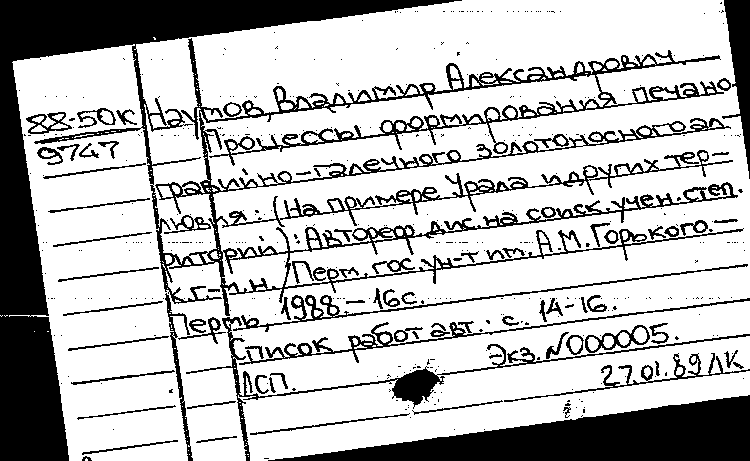 88-50К Наумов, Владимир Александрович.
9747 Процессы формирования печано-
гравийно-галечного золотоносного ал-
лювия: (На примере Урала и других тер-
риторий): Автореф. дис. на соиск. учен. степ.
к.г.-м.н. / Перм. гос. ун-т им. А.М. Горького. —
Пермь, 1988. — 16с.
Список работ авт.: с. 14-16.
ДСП. Экз. N000005.
27.01.89 ЛК